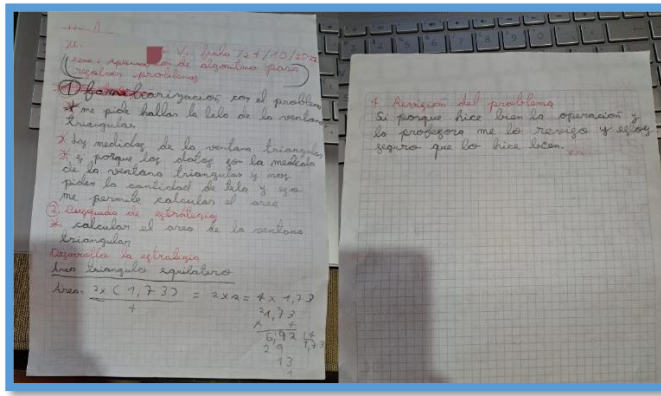 V. fecha 24/10/2022
de algoritmo para
resolver problemas
① familiarización con el problema
* me pide hallar la tela de la ventana
triangular
* las medidas de la ventana triangular
* si porque los datos son la medida
de la ventana triangular y nos
piden la cantidad de tela y eso
me permite calcular el area
② busqueda de estrategia
* calcular el area de la ventana
triangular
Desarrollo la estrategia
Area triangulo equilatero
Area= 2x(1,73) = 2x2=4x1,73
4
1,73
x 4
6,92 |4
2 9 1,73
13
1
4. Revisión del problema
Si porque hice bien la operación y
la profesora me lo reviso y estoy
seguro que lo hice bien.